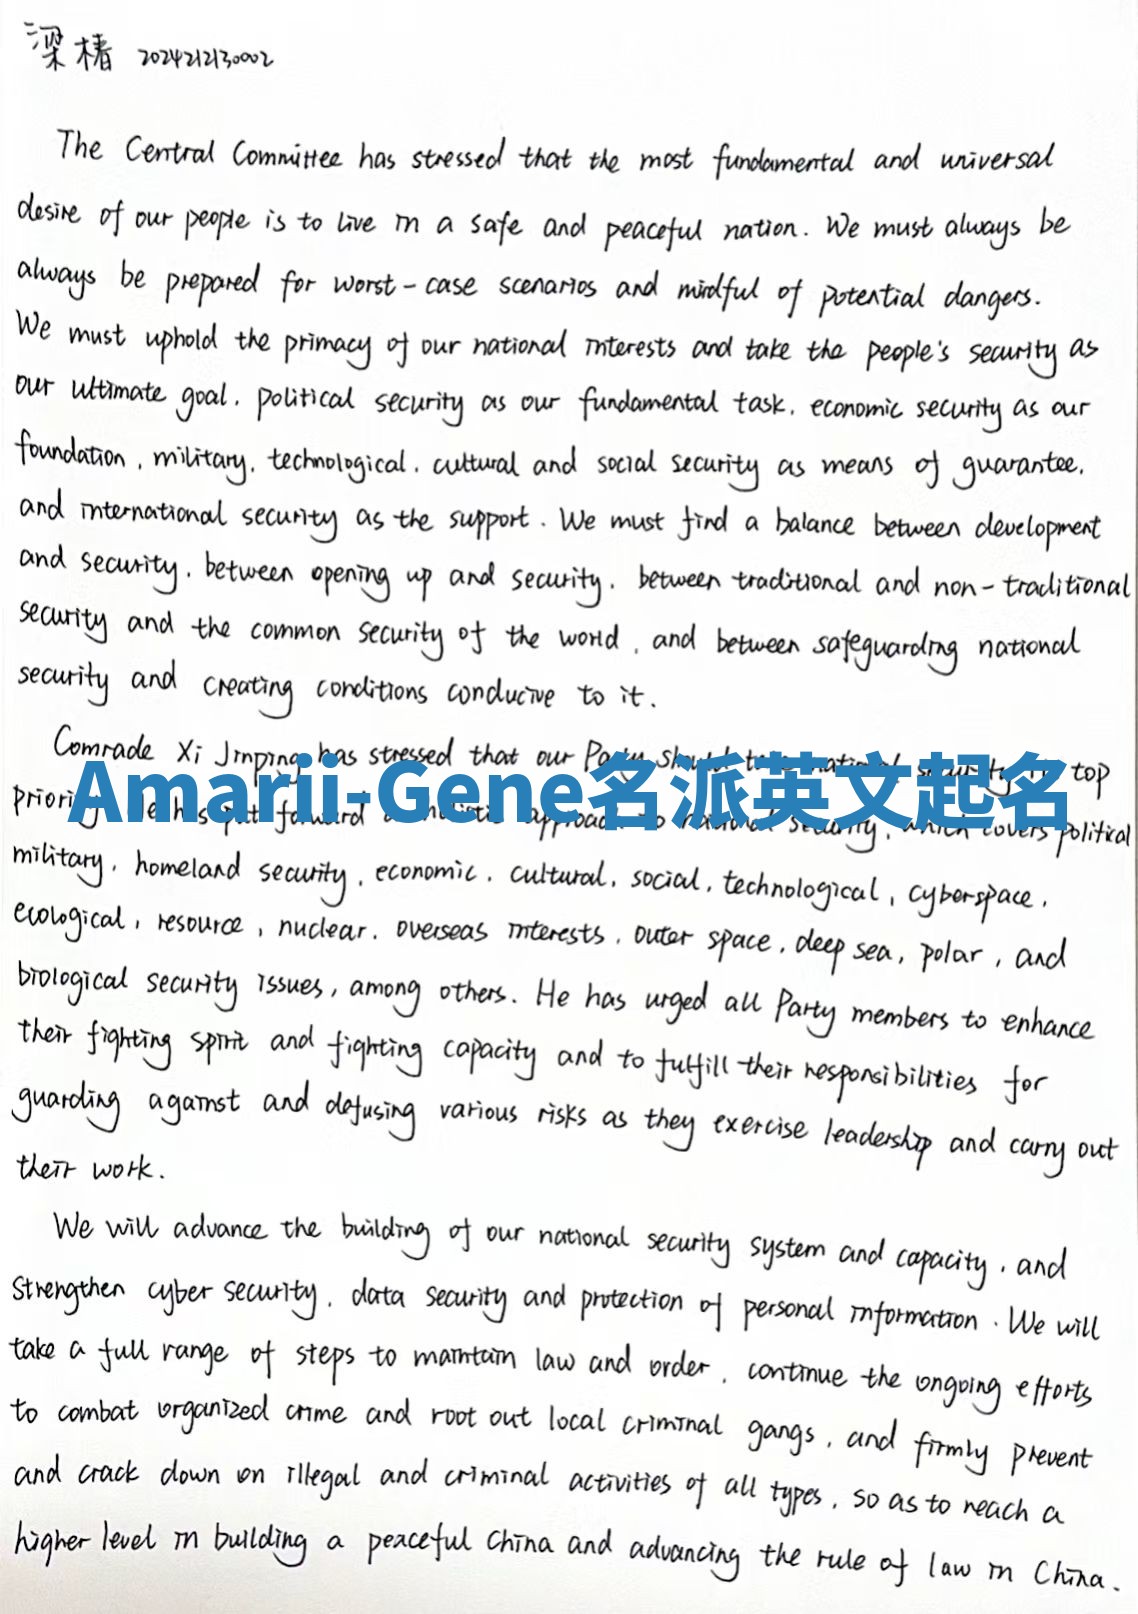 梁椿 2024212130002
The Central Committee has stressed that the most fundamental and universal
desire of our people is to live in a safe and peaceful nation. We must always be
always be prepared for worst-case scenarios and mindful of potential dangers.
We must uphold the primacy of our national interests and take the people's security as
our ultimate goal, political security as our fundamental task, economic security as our
foundation, military, technological, cultural and social security as means of guarantee,
and international security as the support. We must find a balance between development
and security, between opening up and security, between traditional and non-traditional
security and the common security of the world, and between safeguarding national
security and creating conditions conducive to it.
Comrade Xi Jinping has stressed that our Party should national security top
Amarii-Gene名派英文起名
has put forward a holistic approach to national security, which covers political
military, homeland security, economic, cultural, social, technological, cyberspace,
ecological, resource, nuclear, overseas interests, outer space, deep sea, polar, and
biological security issues, among others. He has urged all Party members to enhance
their fighting spirit and fighting capacity and to fulfill their responsibilities for
guarding against and defusing various risks as they exercise leadership and carry out
their work.
We will advance the building of our national security system and capacity, and
strengthen cyber security, data security and protection of personal information. We will
take a full range of steps to maintain law and order, continue the ongoing efforts
to combat organized crime and root out local criminal gangs, and firmly prevent
and crack down on illegal and criminal activities of all types, so as to reach a
higher level in building a peaceful China and advancing the rule of law in China.